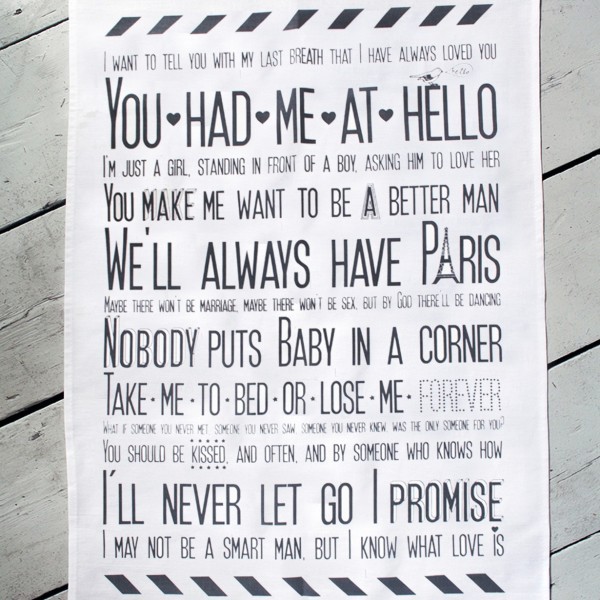 I want to tell you with my last breath that I have always loved you
You♥had♥me♥at♥hello
I'm just a girl, standing in front of a boy, asking him to love her
You make me want to be a better man
We'll always have Paris
Maybe there won't be marriage, maybe there won't be sex, but by God there'll be dancing
Nobody puts Baby in a corner
Take·me·to·bed·or·lose·me·forever
What if someone you never met, someone you never saw, someone you never knew, was the only someone for you?
You should be kissed, and often, and by someone who knows how
I'll never let go I promise
I may not be a smart man, but I know what love is